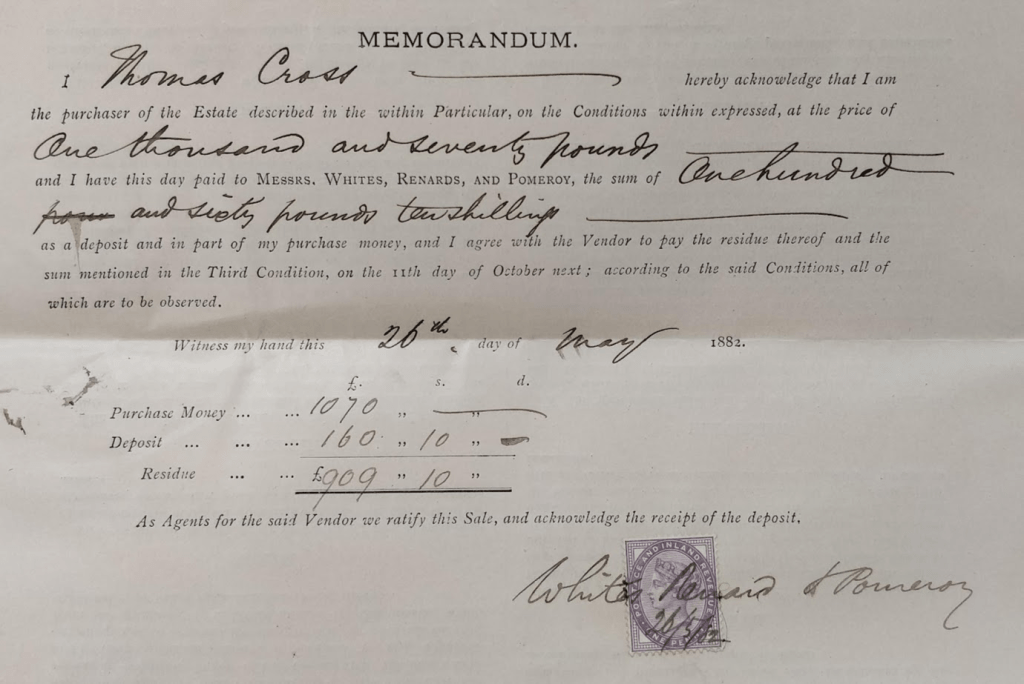 MEMORANDUM.
I Thomas Cross hereby acknowledge that I am
the purchaser of the Estate described in the within Particular, on the Conditions within expressed, at the price of
One thousand and seventy pounds
and I have this day paid to MESSRS. WHITES, RENARDS, AND POMEROY, the sum of One hundred
and sixty pounds ten shillings
as a deposit and in part of my purchase money, and I agree with the Vendor to pay the residue thereof and the
sum mentioned in the Third Condition, on the 11th day of October next; according to the said Conditions, all of
which are to be observed.
Witness my hand this 26th day of May 1882.
£. s. d.
Purchase Money ... ... 1070 „ — „
Deposit ... ... ... 160 „ 10 „ -
Residue ... ... £909 „ 10 „
As Agents for the said Vendor we ratify this Sale, and acknowledge the receipt of the deposit,
Whites Renard & Pomeroy
AND INLAND REVENUE
26/5/82